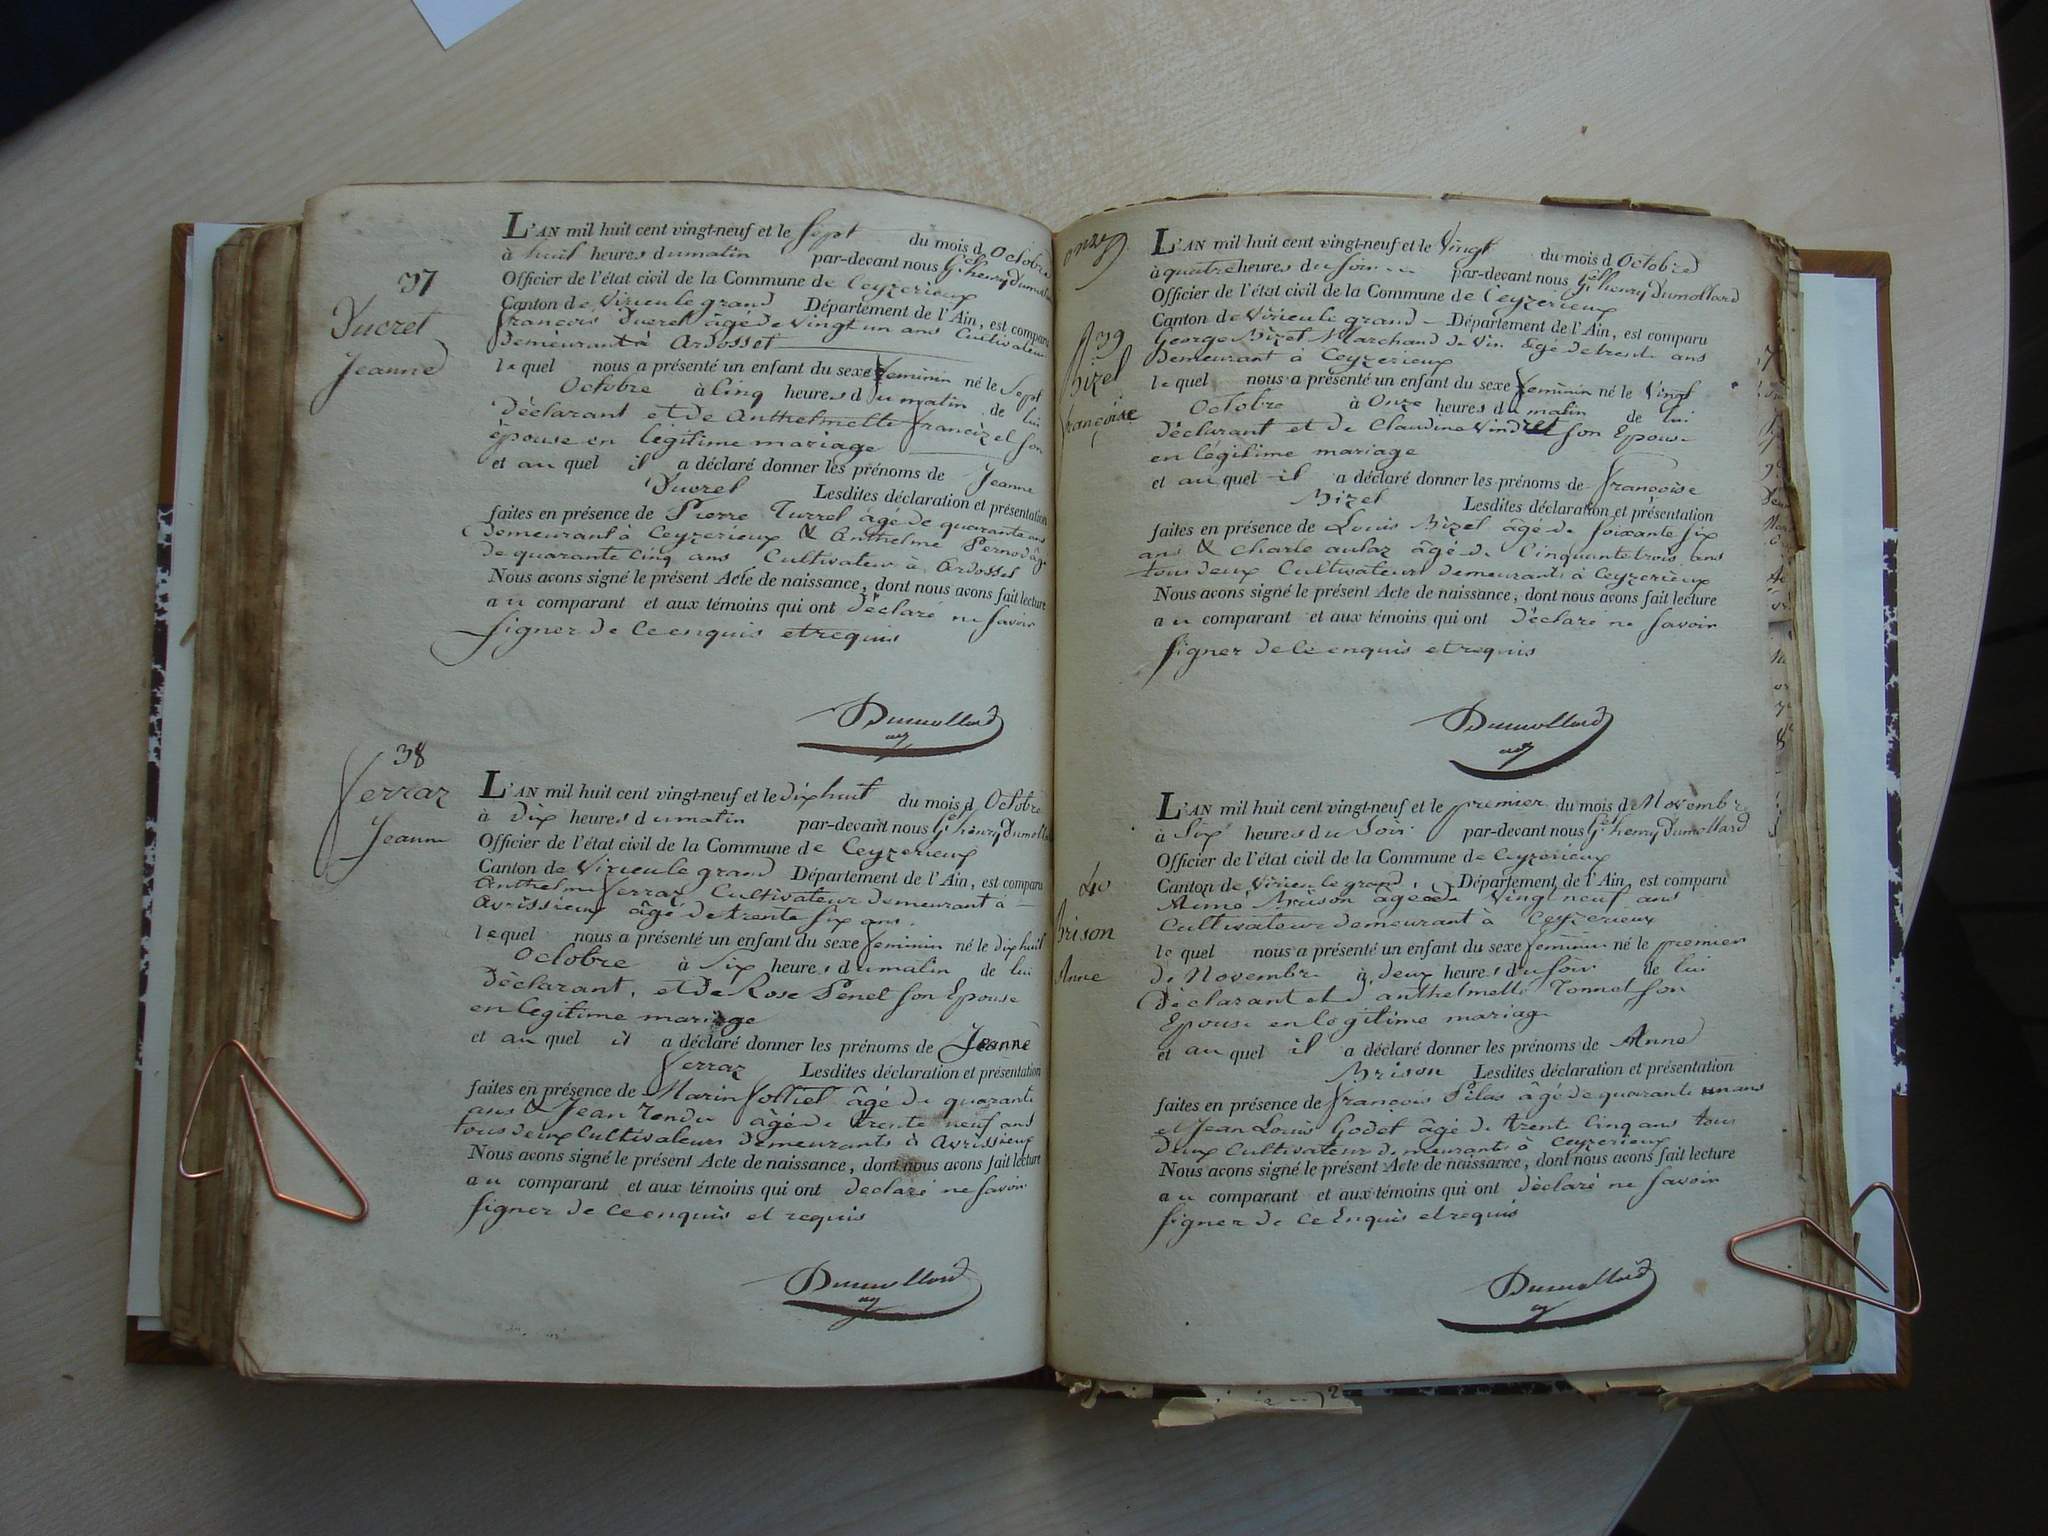 37
Ducret
Jeanne
L'AN mil huit cent vingt-neuf et le sept du mois d Octobre
à huit heures du matin par-devant nous Gel henry Dumollard
Officier de l'état civil de la Commune de Ceyzerieux
Canton de Virieu le grand Département de l'Ain, est comparu
françois Ducret âgé de vingt un ans Cultivateur
demeurant à Ardosset
lequel nous a présenté un enfant du sexe feminin né le sept
Octobre à Cinq heures du matin de lui
Déclarant et de Anthelmette son
épouse en légitime mariage
et au quel il a déclaré donner les prénoms de Jeanne
Ducret Lesdites déclaration et présentation
faites en présence de Pierre Turrel âgé de quarante ans
demeurant à Ceyzerieux & Anthelme Pernod âgé
de quarante cinq ans Cultivateur à Ardosset
Nous avons signé le présent Acte de naissance, dont nous avons fait lecture
au comparant et aux témoins qui ont Déclaré ne savoir
signer de ce enquis et requis
Dumollard
38
Verraz
Jeanne
L'AN mil huit cent vingt-neuf et le dix huit du mois d Octobre
à Dix heures du matin par-devant nous Gel henry Dumollard
Officier de l'état civil de la Commune de Ceyzerieux
Canton de Virieu le grand Département de l'Ain, est comparu
Anthelme Verraz Cultivateur demeurant à
Avrissieux âgé de trente six ans.
lequel nous a présenté un enfant du sexe feminin né le dix huit
Octobre à Six heures du matin de lui
Déclarant, et de Rose Penel son Epouse
en legitime mariage
et au quel il a déclaré donner les prénoms de Jeanne
Verraz Lesdites déclaration et présentation
faites en présence de Marin Jolliet âgé de quarante
ans & Jean Rendu âgé de trente neuf ans
tous deux Cultivateurs demeurants à Avrissieux
Nous avons signé le présent Acte de naissance, dont nous avons fait lecture
au comparant et aux témoins qui ont déclaré ne savoir
signer de ce enquis et requis
Dumollard
onze
39
Bizel
françoise
L'AN mil huit cent vingt-neuf et le Vingt du mois d Octobre
à quatre heures du soir par-devant nous Gel henry Dumollard
Officier de l'état civil de la Commune de Ceyzerieux
Canton de Virieu le grand Département de l'Ain, est comparu
George Bizel Marchand de Vin âgé de trente ans
demeurant à Ceyzerieux
lequel nous a présenté un enfant du sexe feminin né le Vingt
Octobre à Onze heures du matin de lui
déclarant et de Claudine son Epouse
en légitime mariage
et au quel il a déclaré donner les prénoms de françoise
Bizel Lesdites déclaration et présentation
faites en présence de Louis Bizel âgé de soixante six
ans & Charle âgé de Cinquante trois ans
tous deux Cultivateurs demeurants à Ceyzerieux
Nous avons signé le présent Acte de naissance, dont nous avons fait lecture
au comparant et aux témoins qui ont Déclaré ne savoir
signer de ce enquis et requis
Dumollard
40
Brison
Anne
L'AN mil huit cent vingt-neuf et le premier du mois d Novembre
à Six heures du Soir par-devant nous Gel henry Dumollard
Officier de l'état civil de la Commune de Ceyzerieux
Canton de Virieu le grand Département de l'Ain, est comparu
Aimé Brison âgé de Vingt neuf ans
Cultivateur demeurant à Ceyzerieux
lequel nous a présenté un enfant du sexe feminin né le premier
de Novembre à deux heures du soir de lui
Déclarant et d anthelmette Tonnet son
Epouse en légitime mariage
et au quel il a déclaré donner les prénoms de Anne
Brison Lesdites déclaration et présentation
faites en présence de françois Pélas âgé de quarante un ans
et Jean Louis Godet âgé de trente Cinq ans tous
deux Cultivateurs demeurants à Ceyzerieux
Nous avons signé le présent Acte de naissance, dont nous avons fait lecture
au comparant et aux témoins qui ont déclaré ne savoir
signer de ce Enquis et requis
Dumollard